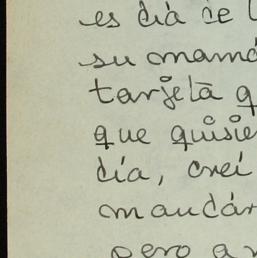 es día de
su mamá
tarjeta q
que quisie
día, creí
mandár
pero a